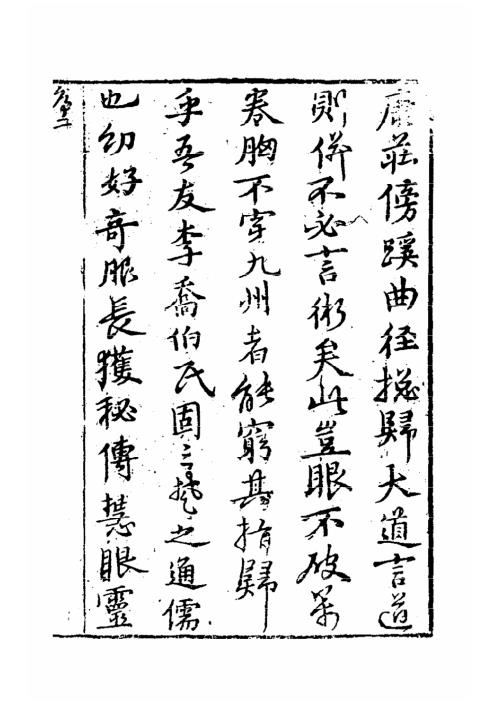 康莊傍蹊曲徑揔歸大道言道
則併不必言術矣此豈眼不破萬
卷胸不穿九州者能窮其指歸
乎吾友李喬伯氏固三楚之通儒
也幼好奇服長獲秘傳慧眼靈
序二